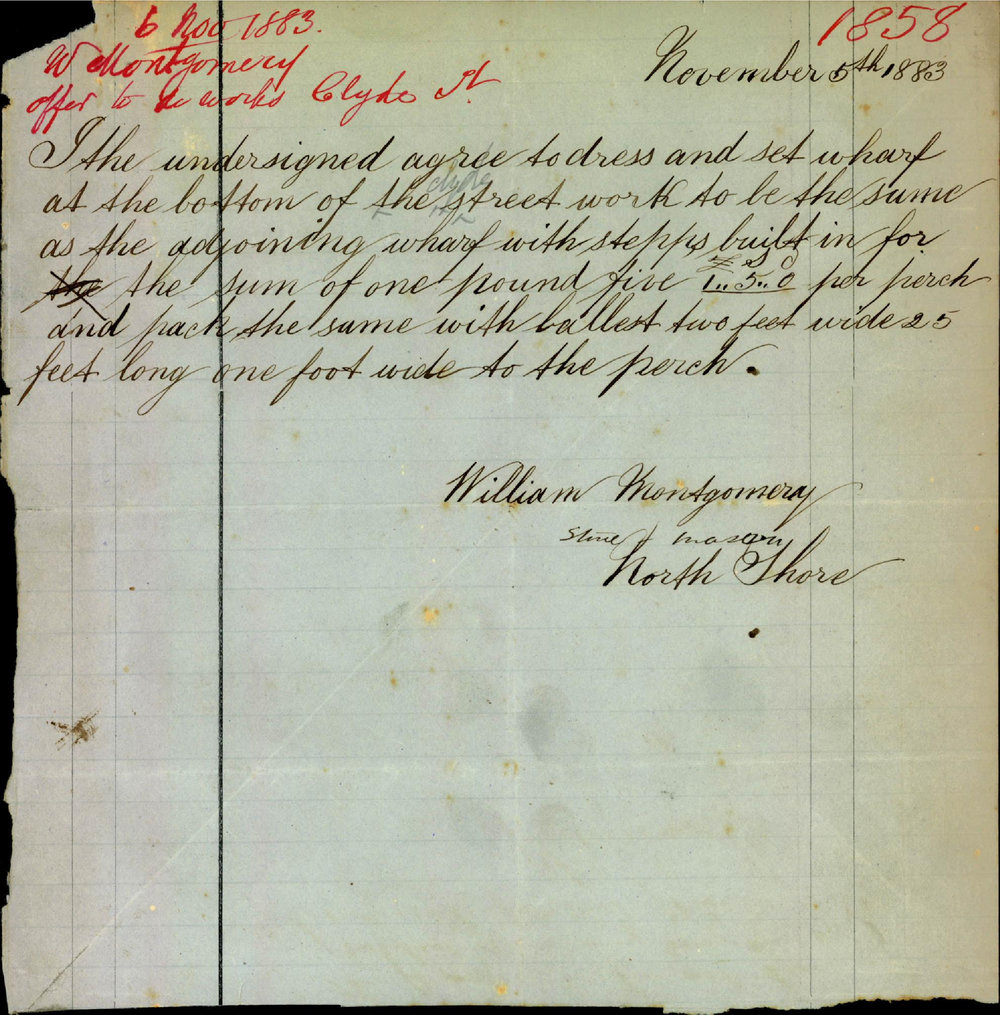 6 Nov 1883.
1858
W Montgomery
offer to do works Clyde St
November 5th 1883
I the undersigned agree to dress and set wharf
clyde
at the bottom of the street work to be the same
as the adjoining wharf with stepps built in for
£ S D
the the sum of one pound five 1..5..0 per perch
and pack the same with ballest two feet wide 25
feet long one foot wide to the perch.
William Montgomery
Stone mason
North Shore